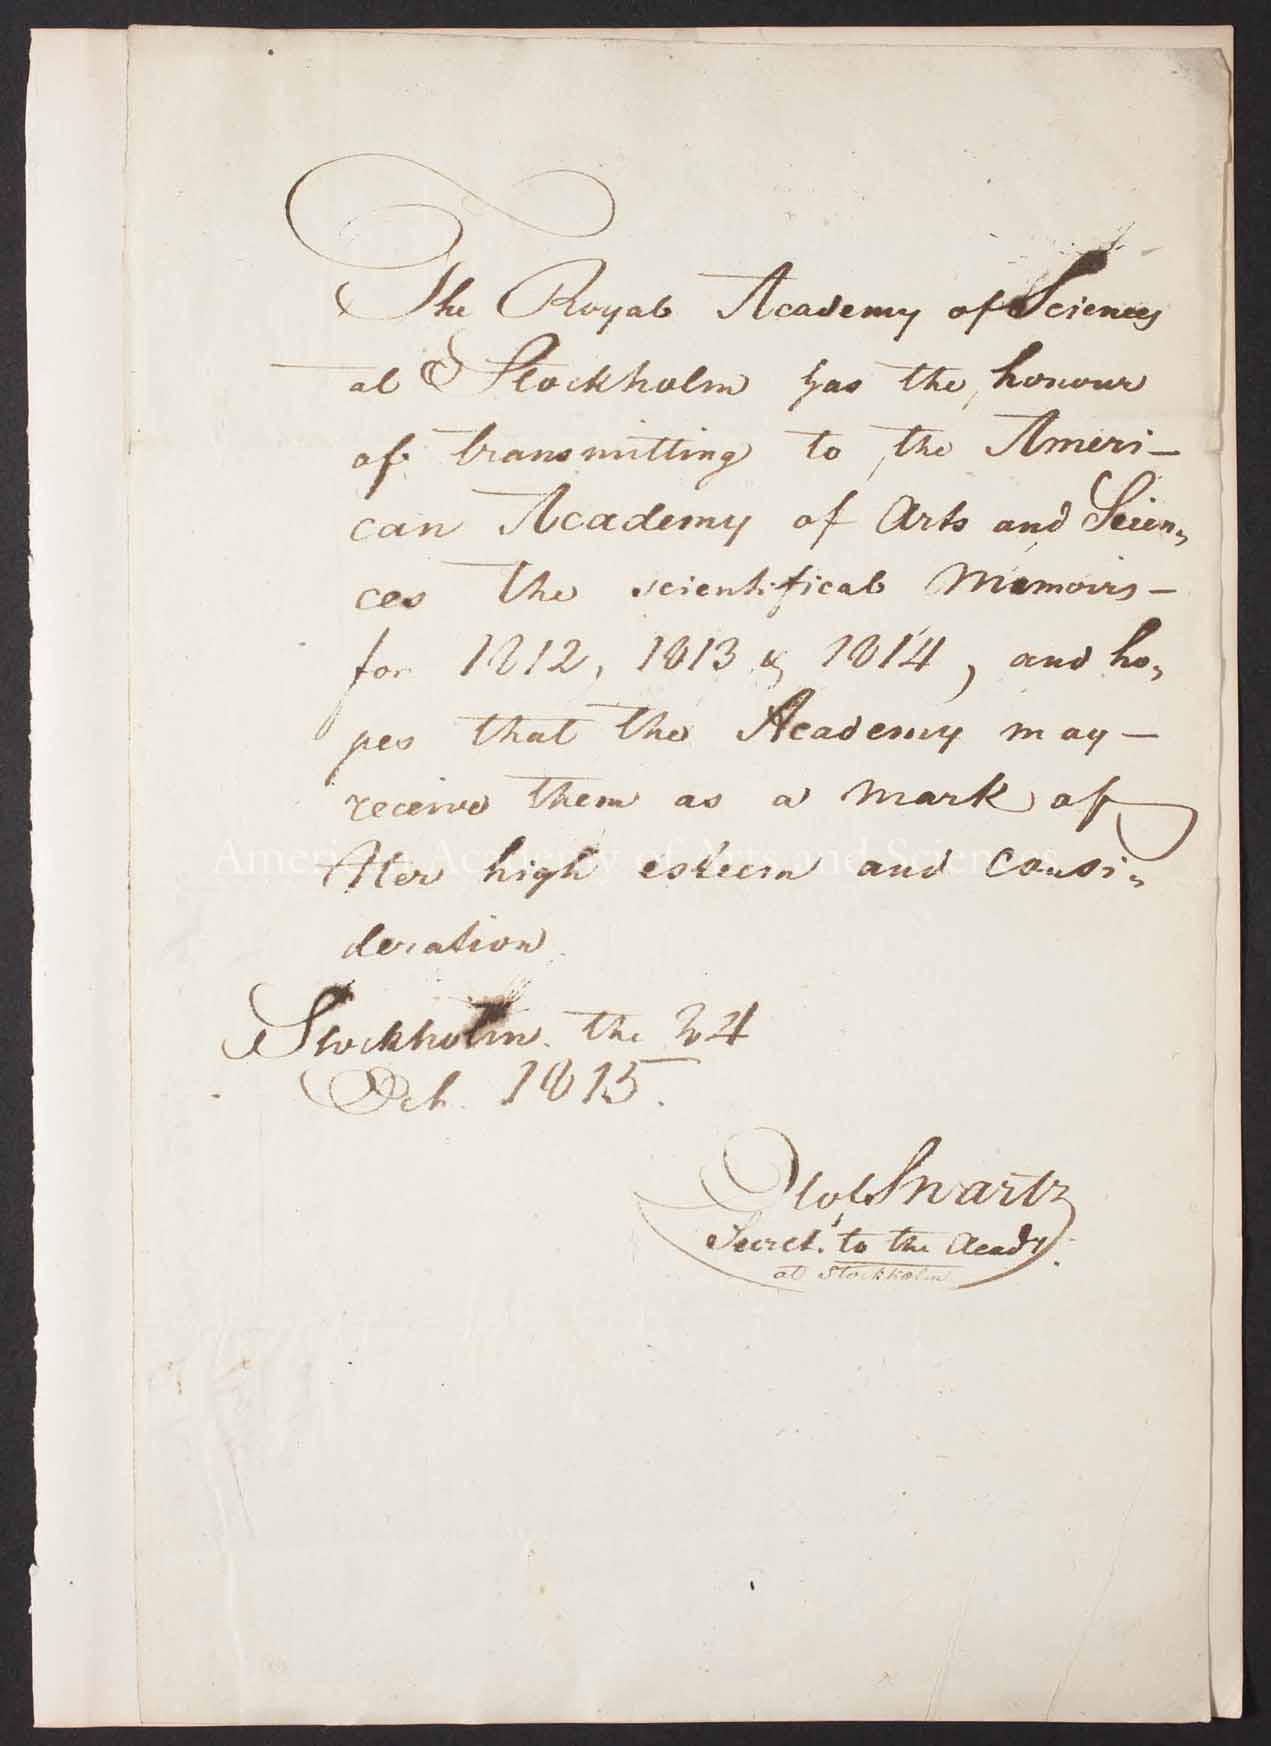 The Royal Academy of Sciences
at Stockholm has the honour
of transmitting to the Ameri-
can Academy of Arts and Scien,,
ces the scientifical Memoirs-
for 1812, 1813 & 1814, and ho,,
pes that the Academy may-
receive them as a mark of
Her high esteem and consi,,
deration.
American Academy of Arts and Sciences
Stockholm. the 24
Oct. 1815.
Olof Swartz
Secret.^y to the Acad^y.
at Stockholm